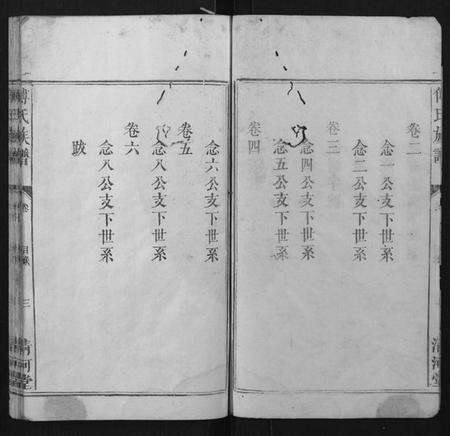 卷二
念一公支下世系
念二公支下世系
卷三
念四公支下世系
念五公支下世系
卷四
念六公支下世系
卷五
念八公支下世系
卷六
念八公支下世系
跋
傅氏族譜
卷
目錄
三
清河堂
清河堂